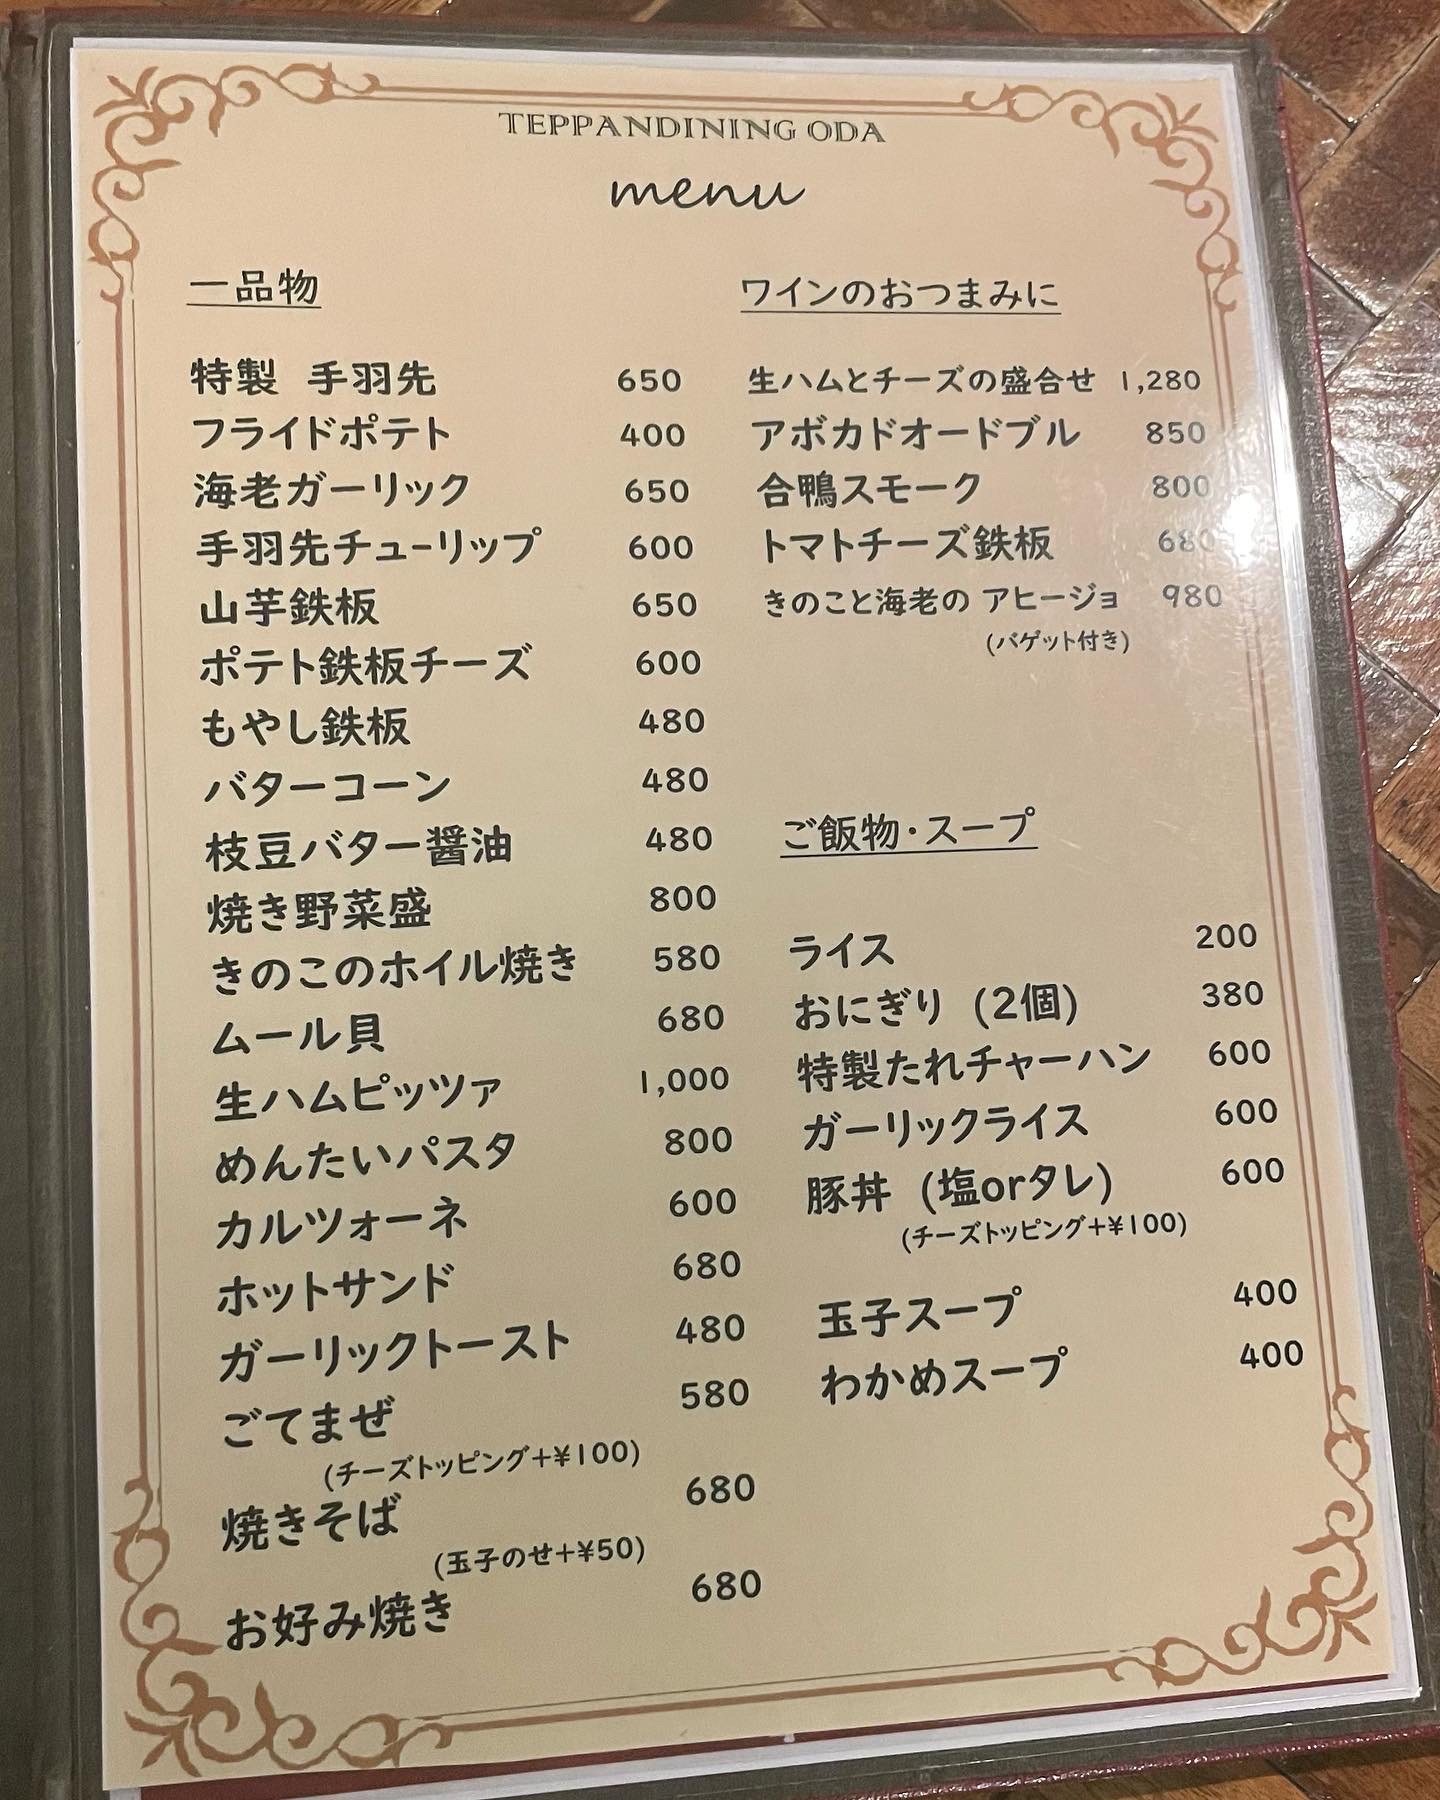 TEPPANDINING ODA
menu
一品物
特製 手羽先 650
フライドポテト 400
海老ガーリック 650
手羽先チューリップ 600
山芋鉄板 650
ポテト鉄板チーズ 600
もやし鉄板 480
バターコーン 480
枝豆バター醤油 480
焼き野菜盛 800
きのこのホイル焼き 580
ムール貝 680
生ハムピッツァ 1,000
めんたいパスタ 800
カルツォーネ 600
ホットサンド 680
ガーリックトースト 480
ごてまぜ 580
(チーズトッピング+¥100)
焼きそば 680
(玉子のせ+¥50)
お好み焼き 680
ワインのおつまみに
生ハムとチーズの盛合せ 1,280
アボカドオードブル 850
合鴨スモーク 800
トマトチーズ鉄板 680
きのこと海老の アヒージョ 980
(バゲット付き)
ご飯物・スープ
ライス 200
おにぎり (2個) 380
特製たれチャーハン 600
ガーリックライス 600
豚丼 (塩orタレ) 600
(チーズトッピング+¥100)
玉子スープ 400
わかめスープ 400